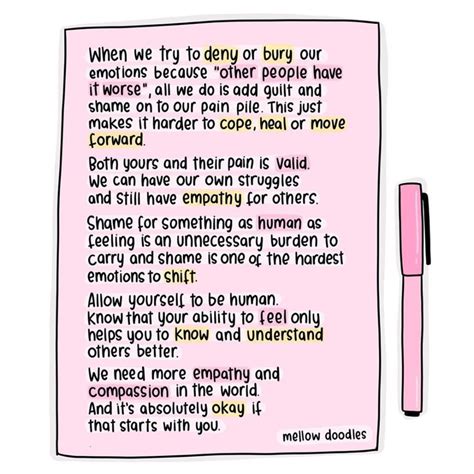 When we try to deny or bury our
emotions because "other people have
it worse", all we do is add guilt and
shame on to our pain pile. This just
makes it harder to cope, heal or move
forward.
Both yours and their pain is valid.
We can have our own struggles
and still have empathy for others.
Shame for something as human as
feeling is an unnecessary burden to
carry and shame is one of the hardest
emotions to shift.
Allow yourself to be human.
Know that your ability to feel only
helps you to know and understand
others better.
We need more empathy and
compassion in the world.
And it's absolutely okay if
that starts with you.
mellow doodles